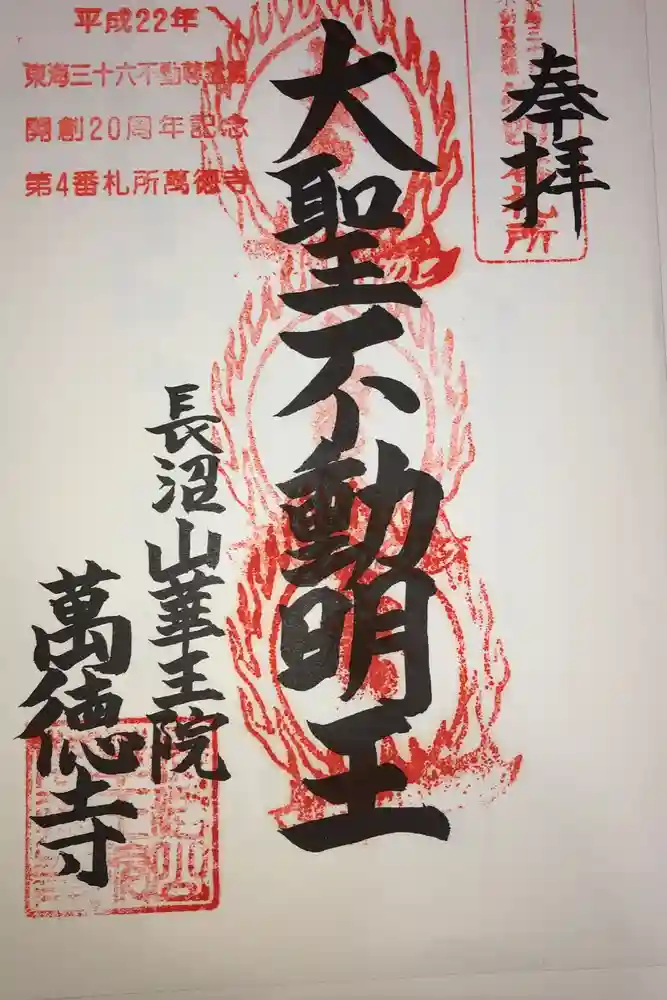 奉拝
大聖不動明王
長沼山華王院
萬徳寺
平成22年
東海三十六不動尊霊場
開創20周年記念
第4番札所萬徳寺
札所